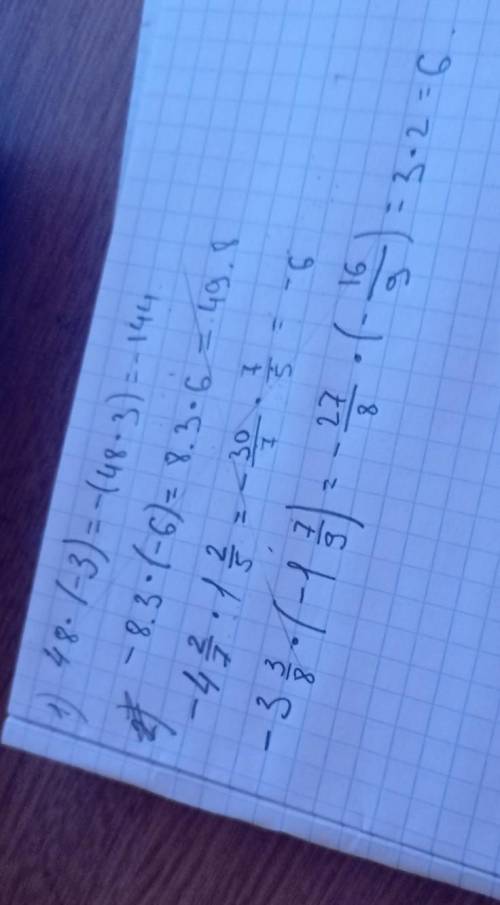 1) 48·(-3)=-(48·3)=-144
2) -8.3·(-6)=8.3·6=49.8
-4 2/7·1 2/5=-30/7·7/5=-6
-3 3/8·(-1 7/9)=-27/8·(-16/9)=3·2=6.